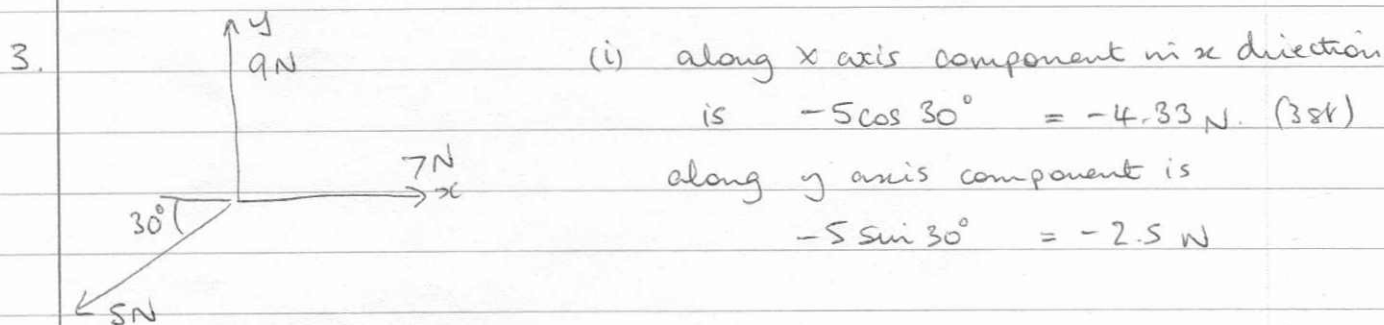 3.
y
9N
7N
x
30°
5N
(i) along x axis component in x direction
is -5cos 30° = -4.33 N. (3sf)
along y axis component is
-5 sin 30° = -2.5 N